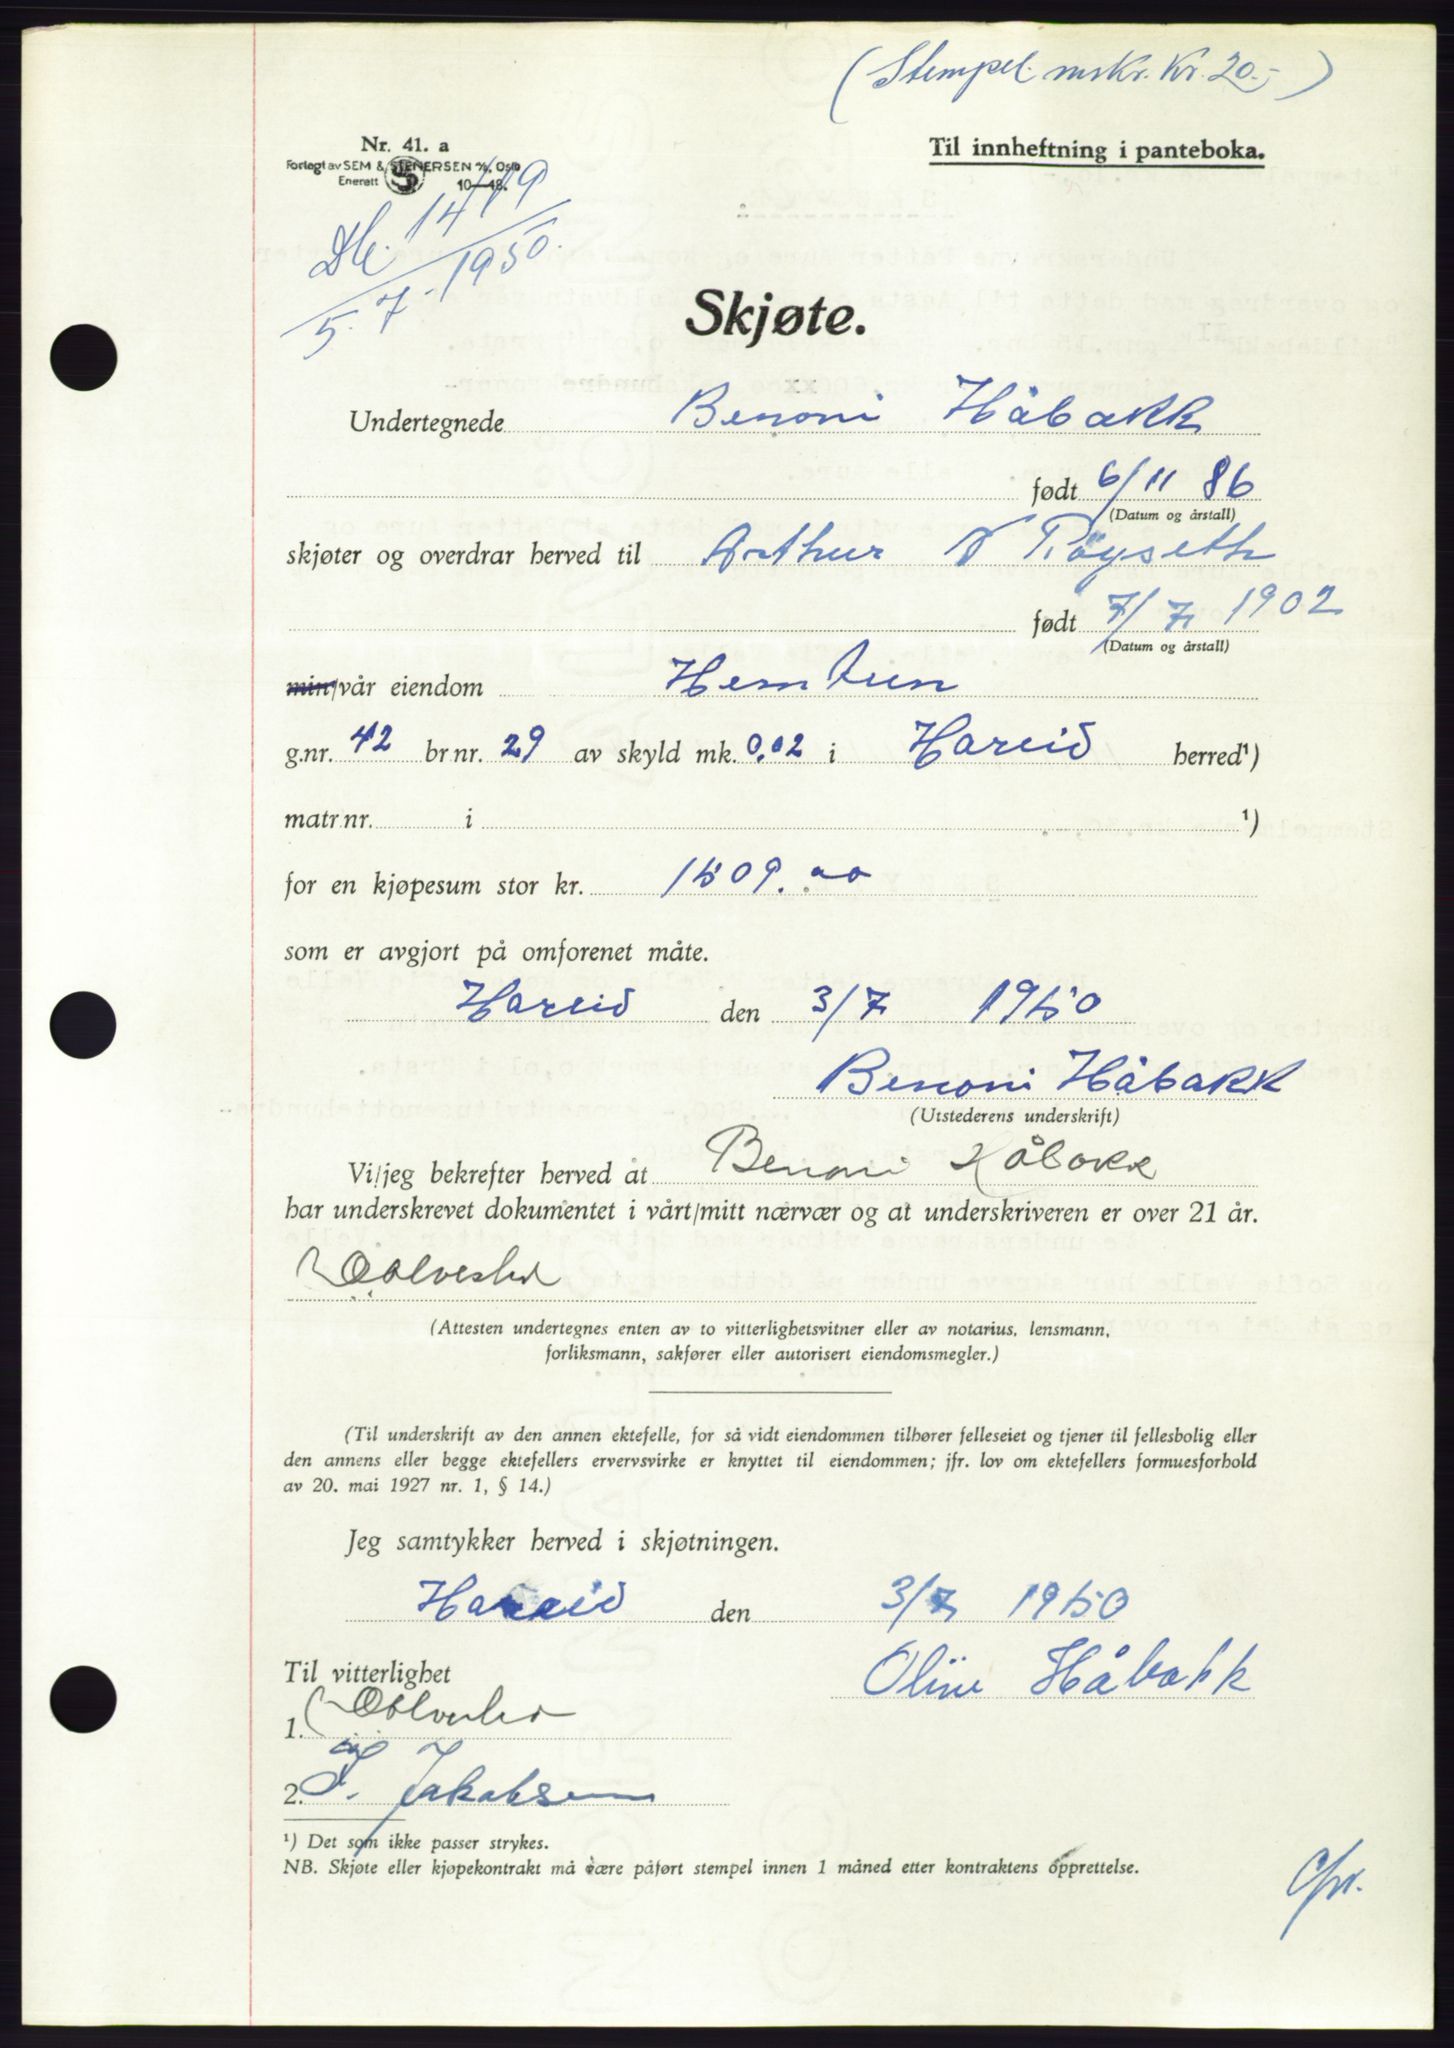 (Stempel mrk. Kr. 20.-)
Nr. 41. a
Forlagt av SEM & STENERSEN A/S, Oslo
Enerett 10—48.
Til innheftning i panteboka.
Db. 1419
5. 7 - 1950.
Skjøte.
Undertegnede Benoni Håbakk
født 6/11 86
(Datum og årstall)
skjøter og overdrar herved til Arthur Röyseth
født 7/7 1902
(Datum og årstall)
min/vår eiendom Hemtun
g.nr. 42 br.nr. 29 av skyld mk. 0,02 i Hareid herred¹)
matr.nr. i ¹)
for en kjøpesum stor kr. 1509.00
som er avgjort på omforenet måte.
Hareid den 3/7 1950
Benoni Håbakk
(Utstederens underskrift)
Vi/jeg bekrefter herved at Benoni Håbakk
har underskrevet dokumentet i vårt/mitt nærvær og at underskriveren er over 21 år.
(Attesten undertegnes enten av to vitterlighetsvitner eller av notarius, lensmann,
forliksmann, sakfører eller autorisert eiendomsmegler.)
(Til underskrift av den annen ektefelle, for så vidt eiendommen tilhører felleseiet og tjener til fellesbolig eller
den annens eller begge ektefellers ervervsvirke er knyttet til eiendommen; jfr. lov om ektefellers formuesforhold
av 20. mai 1927 nr. 1, § 14.)
Jeg samtykker herved i skjøtningen.
Hareid den 3/7 1950
Oline Håbakk
Til vitterlighet
1.
2. J. Jakobsen
¹) Det som ikke passer strykes.
NB. Skjøte eller kjøpekontrakt må være påført stempel innen 1 måned etter kontraktens opprettelse.